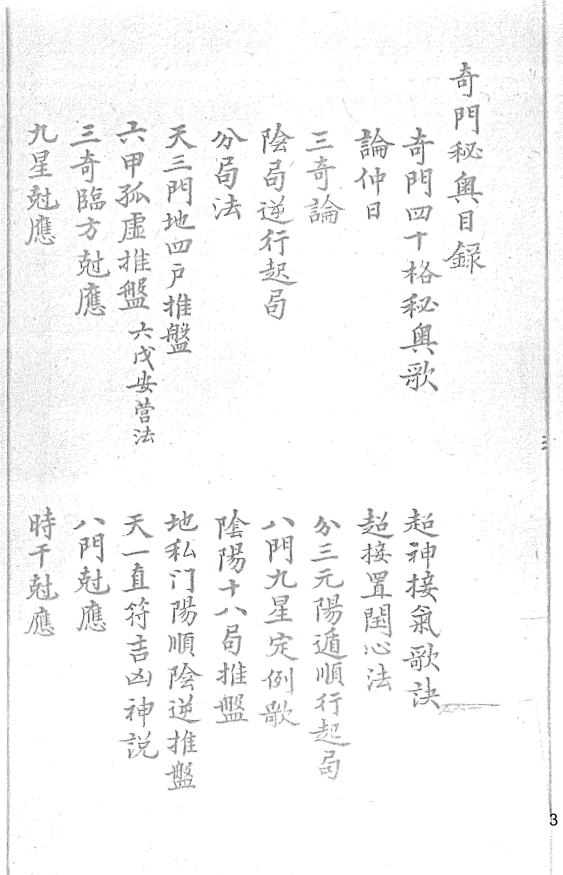 奇門秘奥目録
奇門四十格秘奥歌
超神接氣歌訣
論仲日
超接置閏心法
三奇論
分三元陽遁順行起局
陰局逆行起局
八門九星定例歌
分局法
陰陽十八局推盤
天三門地四户推盤
地私门陽順陰逆推盤
六甲孤虛推盤 六戊安营法
天一直符吉凶神説
三奇臨方尅應
八門尅應
九星尅應
時干尅應
3